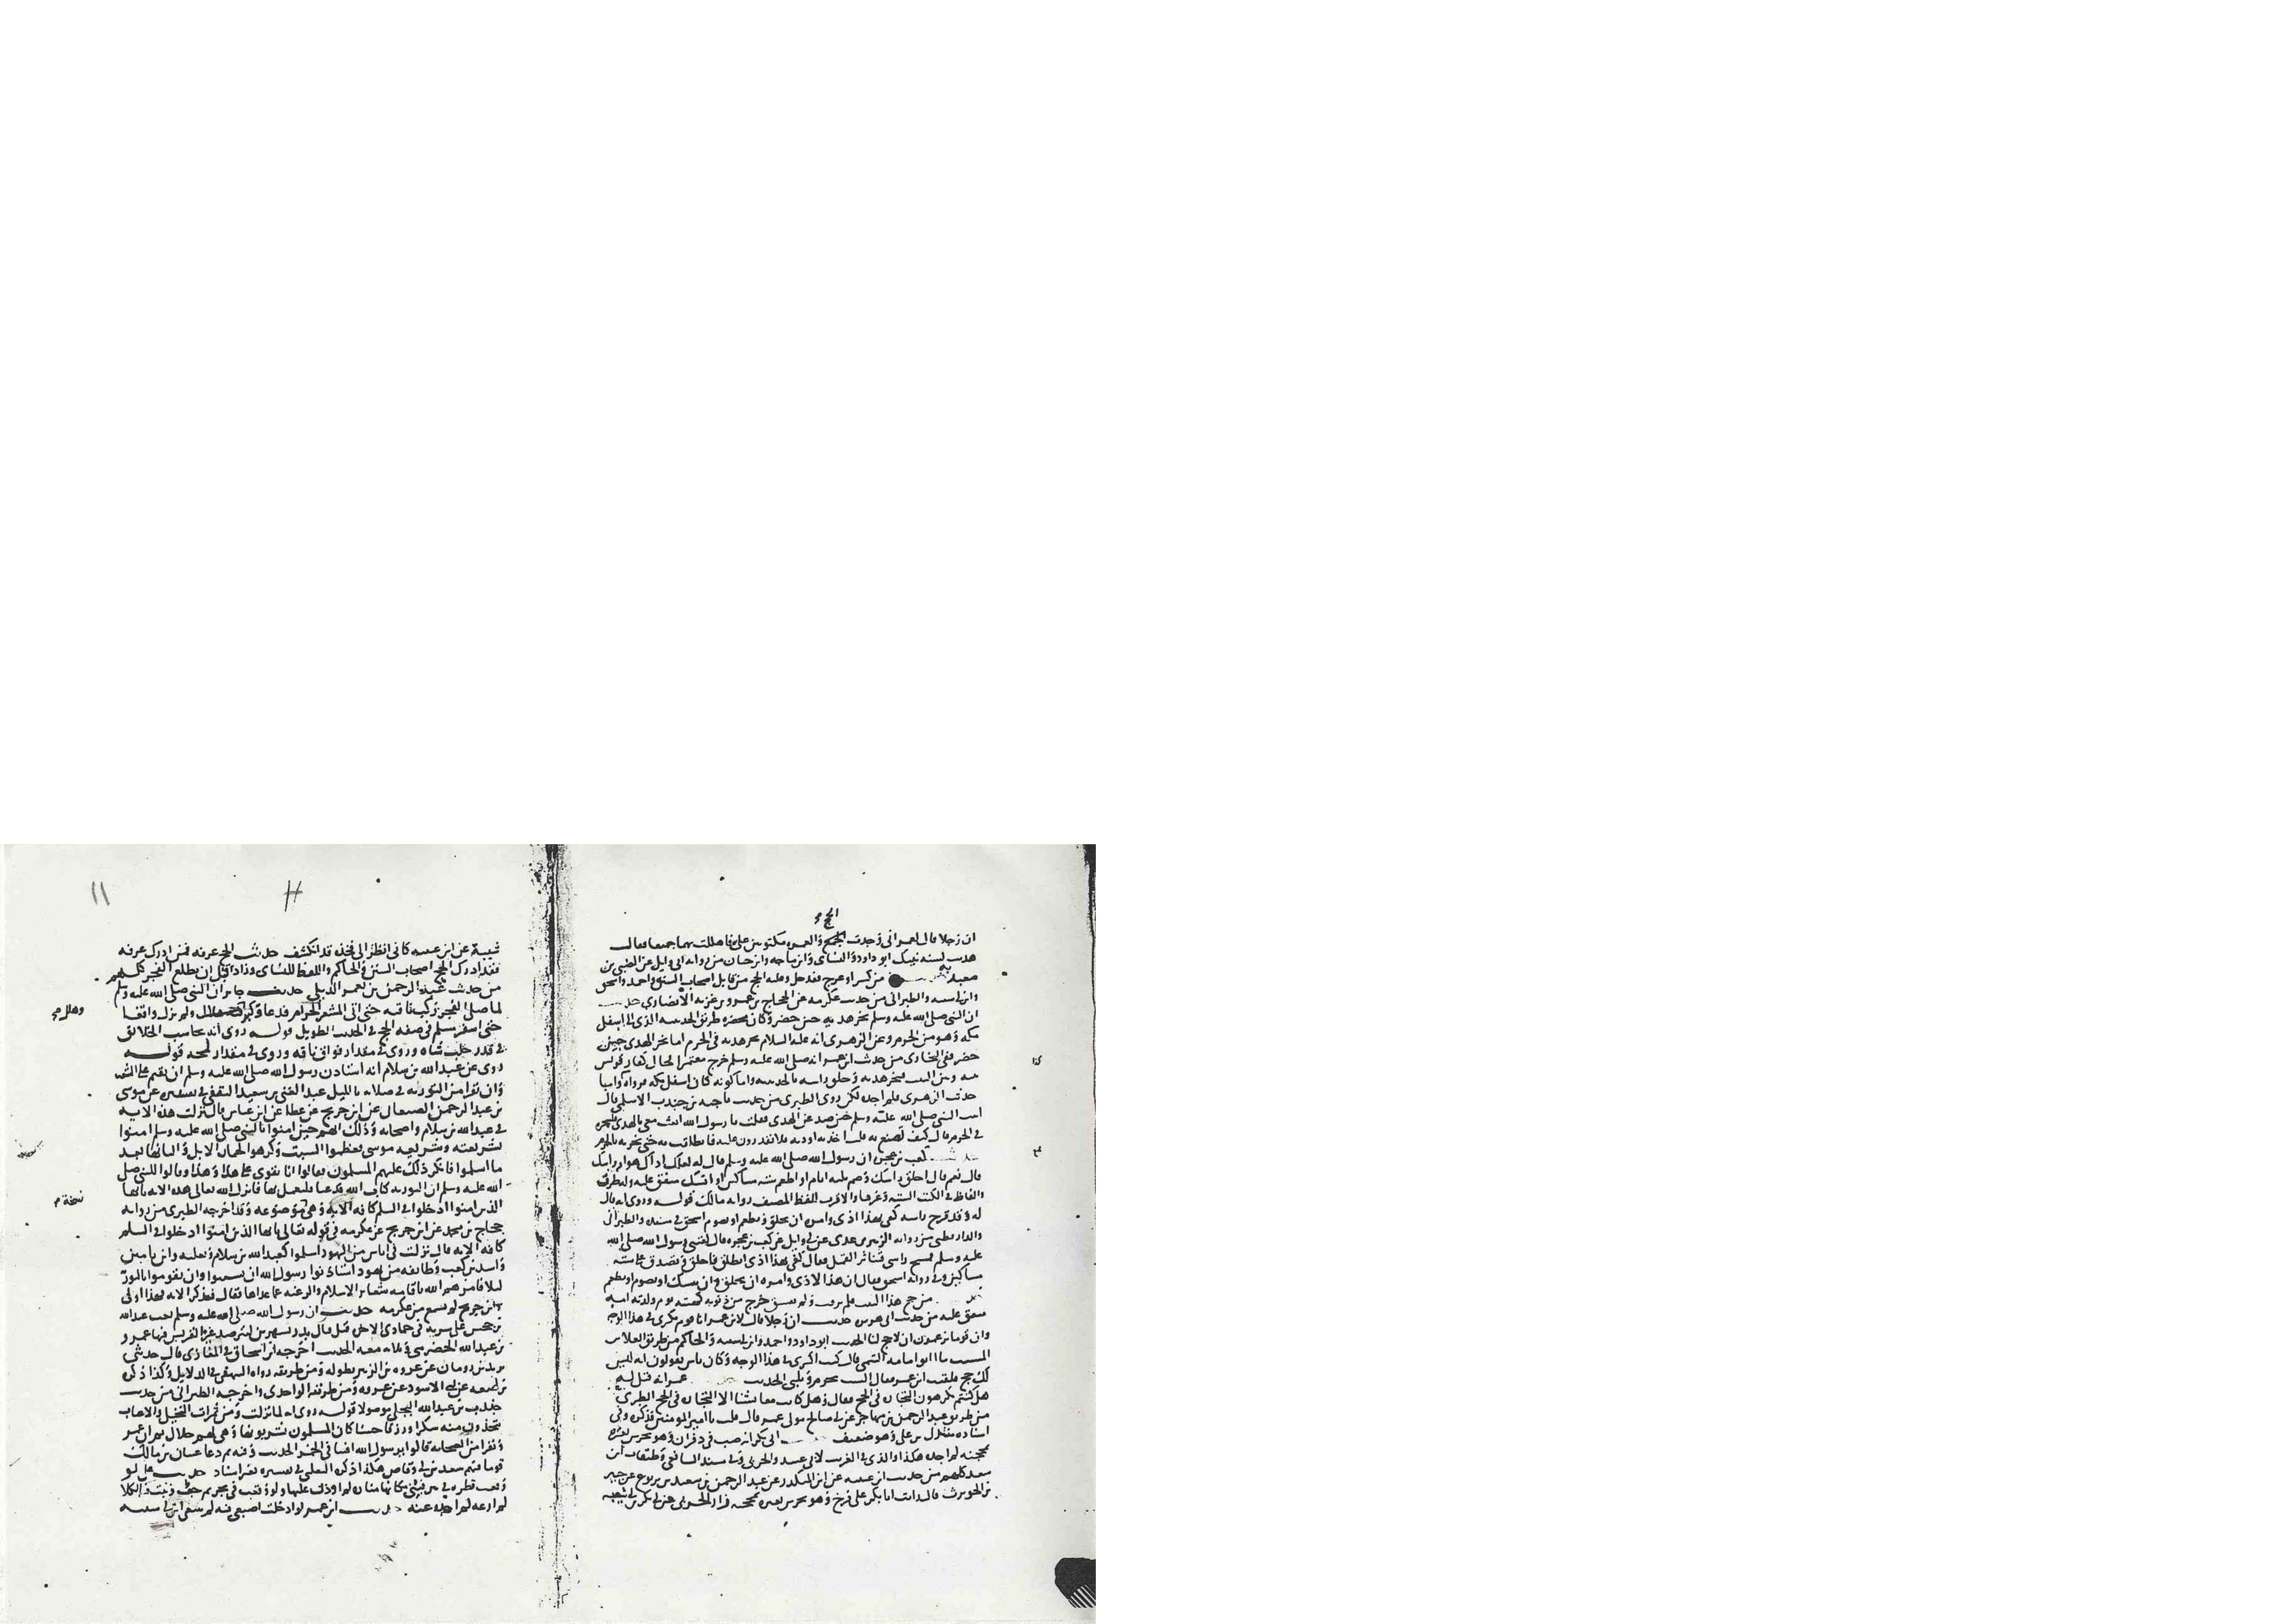 الحج
ان رجلا قال لعمر اني وجدت الحج والعمره مكتوبين علي فاهللت بهما جميعا فقال
هديت لسنه نبيك ابو داود والنساي وابن ماجه وابن حبان من روايه ابي وايل عن الصبي بن
معبد به من كسر او عرج فقد حل وعليه الحج من قابل اصحاب السنن واحمد واسحق
وابن ابي شيبه والطبراني من حديث عكرمه عن الحجاج بن عمرو بن غزيه الانصاري حديث
ان النبي صلى الله عليه وسلم نحر هديه حين حصر وكان محصره طريق الحديبيه الذي الى اسفل
مكه وهو من الحرم وعن الزهري انه عليه السلام نحر هديه في الحرم اما نحر الهدي حين
حصر ففي البخاري من حديث ابن عمر انه صلى الله عليه وسلم خرج معتمرا فحال كفار قريش
بينه وبين البيت فنحر هديه وحلق راسه بالحديبيه واما كونه كان اسفل مكه فرواه
حديث الزهري فلم اجده لكن روى الطبري من حديث ناجيه بن جندب الاسلمي قال
اتيت النبي صلى الله عليه وسلم حين صد عن الهدي فقلت يا رسول الله ابعث معي بالهدي
في الحرم قال كيف تصنع به قلت اخذ به اوديه فلا يقدرون عليه فانطلقت به حتى نحرته بالحرم
كعب بن عجره ان رسول الله صلى الله عليه وسلم قال له لعلك اذاك هوام راسك
قال نعم قال احلق راسك وصم ثلثه ايام او اطعم سته مساكين او انسك متفق عليه وله طرق
والفاظ في الكتب السته وغيرها والاقرب للفظ المصنف روايه مالك قوله وروي انه قال
له وقد قرح راسه كفى بهذا اذى وامره ان يحلق ويطعم او يصوم اسحق في مسنده والطبراني
والدارقطني من روايه الزبير بن عدي عن ابي وايل عن كعب بن عجره قال لقيني رسول الله صلى الله
عليه وسلم فمسح راسي فتناثر القمل فقال كفى بهذا اذى انطلق فاحلق وتصدق على سته
مساكين وفي روايه اسحق فقال ان هذا لاذى وامره ان يحلق وان ينسك او يصوم او يطعم
من حج هذا البيت فلم يرفث ولم يفسق خرج من ذنوبه كهيئته يوم ولدته امه
متفق عليه من حديث ابي هريره حديث ان رجلا قال لابن عمر انا قوم نكري في هذا الوجه
وان قوما يزعمون ان لا حج لنا الحديث ابو داود واحمد وابن ابي شيبه والحاكم من طريق العلا بن
المسيب ابو امامه التيمي قال كنت اكري في هذا الوجه وكان ناس يقولون انه ليس
لك حج فلقيت ابن عمر فقال اليس تحرم وتلبي الحديث عمر انه قيل له
هل كنتم تكرهون التجاره في الحج فقال وهل كانت معايشنا الا التجاره في الحج الطبري
من طريق عبد الرحمن بن مهاجر عن ابي صالح مولى عمر قال قلت يا امير المومنين فذكره وفي
اسناده مندل بن علي وهو ضعيف ابي بكر انه صب في دقران وهو يخرش بعيره
بمحجنه لم اجده هكذا والذي في الغريب لابي عبيد والحربي وفي مسند الشافعي وطبقات ابن
سعد كلهم من حديث ابن عيينه عن ابن المنكدر عن عبد الرحمن بن سعيد بن يربوع عن جبير
بن الحويرث قال رايت ابا بكر على قزح وهو يخرش بعيره بمحجنه زاد الحربي عن ابي بكر بن ابي شيبه
كذا
١١
شيبة عن ابن عيينه كاني انظر الى فخذه قد انكشف حديث الحج عرفه فمن ادرك عرفه
فقد ادرك الحج اصحاب السنن والحاكم واللفظ للنساي وزاد قبل ان يطلع الفجر كلهم
من حديث عبد الرحمن بن يعمر الديلي حديث جابر ان النبي صلى الله عليه وسلم
لما صلى الفجر ركب ناقته حتى اتى المشعر الحرام فدعا وكبر وهلل ولم يزل واقفا
وهلل صح
حتى اسفر مسلم في صفه الحج في الحديث الطويل قوله روي انه يحاسب الخلائق
في قدر حلب شاه وروي في مقدار فواق ناقه وروي في مقدار لمحه قوله
روي عن عبد الله بن سلام انه استاذن رسول الله صلى الله عليه وسلم ان يقيم على السبت
وان يقرا من التوريه في صلاته بالليل عبد الغني بن سعيد الثقفي في تفسيره عن موسى
بن عبد الرحمن الصنعاني عن ابن جريج عن عطا عن ابن عباس قال نزلت هذه الايه
في عبد الله بن سلام واصحابه وذلك انهم حين امنوا بالنبي صلى الله عليه وسلم امنوا
بشريعته وشريعه موسى فعظموا السبت وكرهوا لحمان الابل والبانها بعد
ما اسلموا فانكر ذلك عليهم المسلمون فقالوا انا نقوى على هذا وهذا وقالوا للنبي صلى
الله عليه وسلم ان التوريه كتاب الله فدعنا فلنعمل بها فانزل الله تعالى هذه الايه يا ايها
نسخة م
الذين امنوا ادخلوا في السلم كافه الايه وهي موضوعه وقد اخرجه الطبري من روايه
حجاج بن محمد عن ابن جريج عن عكرمه في قوله تعالى يا ايها الذين امنوا ادخلوا في السلم
كافه الايه قال نزلت في اناس من اليهود اسلموا كعبد الله بن سلام وثعلبه وابن يامين
واسد بن كعب وطايفه من يهود استاذنوا رسول الله ان يسبتوا وان يقوموا بالتوريه
ليلا فامرهم الله باقامه شعاير الاسلام والرغبه عما عداها فقال فذكر الايه فهذا اولى
وابن جريج لم يسمع من عكرمه حديث ان رسول الله صلى الله عليه وسلم بعث عبد الله
بن جحش على سريه في جمادى الاخره قبل قتال بدر بشهرين ليترصد عيرا لقريش فيها عمرو
بن عبد الله الحضرمي وثلاثه معه الحديث اخرجه ابن اسحاق في المغازي قال حدثني
يزيد بن رومان عن عروه بن الزبير بطوله ومن طريقه رواه البيهقي في الدلايل وكذا ذكره
بن لهيعه عن ابي الاسود عن عروه ومن طريقه الواحدي واخرجه الطبراني من حديث
جندب بن عبد الله البجلي موصولا قوله روي انه لما نزلت ومن ثمرات النخيل والاعناب
تتخذون منه سكرا ورزقا حسنا كان المسلمون يشربونها وهي لهم حلال ثم ان عمر
ونفرا من الصحابه قالوا يا رسول الله افتنا في الخمر الحديث وفيه ثم دعا عتبان بن مالك
قوما فيهم سعد بن ابي وقاص هكذا ذكره الثعلبي في تفسيره بغير اسناد حديث علي لو
وقعت قطره في بير فبنيت مكانها مناره لم اوذن عليها ولو وقعت في بحر ثم جف ونبت الكلا
لم ارعه لم اجده عنه حديث ابن عمر لو ادخلت اصبعي فيه لم تتبعني ابن ابي شيبه